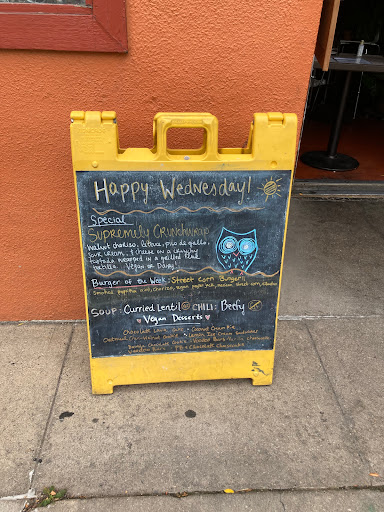 Happy Wednesday!
Special
Supremely Crunchwrap
walnut chorizo, lettuce, pico de gallo,
sour cream, & cheese on a crunchy
tostada wrapped in a grilled flour
tortilla. Vegan or Dairy!
Burger of the Week: Street Corn Burger!
smoked paprika aioli, chorizo, vegan pepper jack, mexican street corn, cilantro
SOUP: Curried Lentil CHILI: Beefy
Vegan Desserts
Chocolate Cake • Coconut Cream Pie
Oatmeal Cookies • Lemon Ice Cream Sandwiches
Chocolate Cheesecake